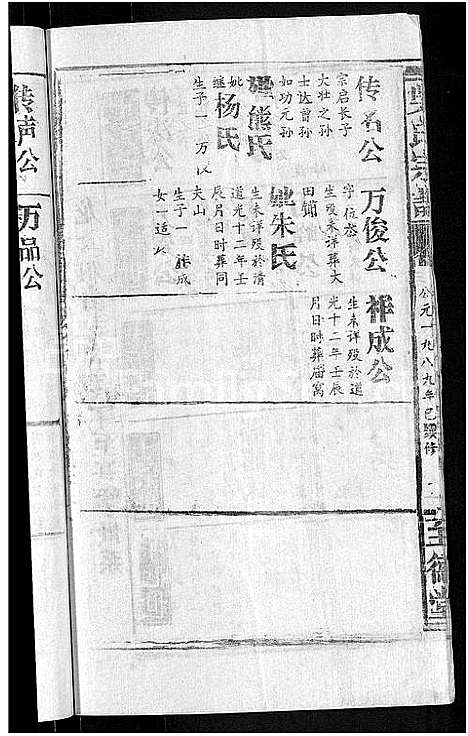 吴氏宗谱
公元一九八九年己续修
至德堂
传名公
宗启长子
大壮之孙
士达曾孙
如功元孙
妣熊氏
继杨氏
生子一 万俊
万俊公
字位泰
生殁未详葬大
田铺
妣朱氏
生未详殁於清
道光十二年壬
辰月日时葬同
夫山
生子一 祥成
女一适
祥成公
生未详殁於道
光十二年壬辰
月日时葬庙窝
传声公
万品公